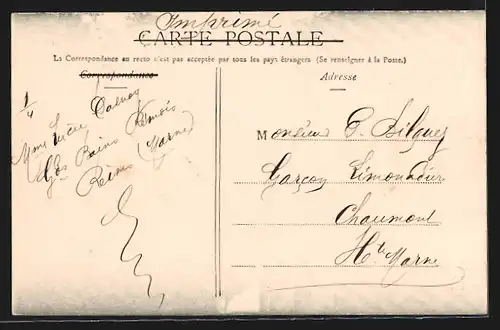 Imprimé
CARTE POSTALE
La Correspondance au recto n'est pas acceptée par tous les pays étrangers (Se renseigner à la Poste.)
Correspondance
Adresse
1/4
Mme Lucie
Gds Bains Rémois
Reims (Marne)
Monsieur
Garçon Limonadier
Chaumont
Hte Marne